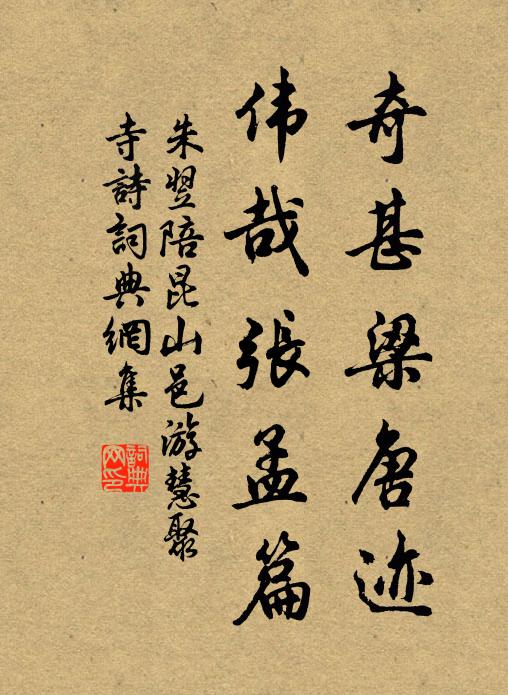 奇甚梁唐迹
伟哉張孟篇
朱翌陪昆山邑游慧聚
寺詩詞典網集
詞典网印